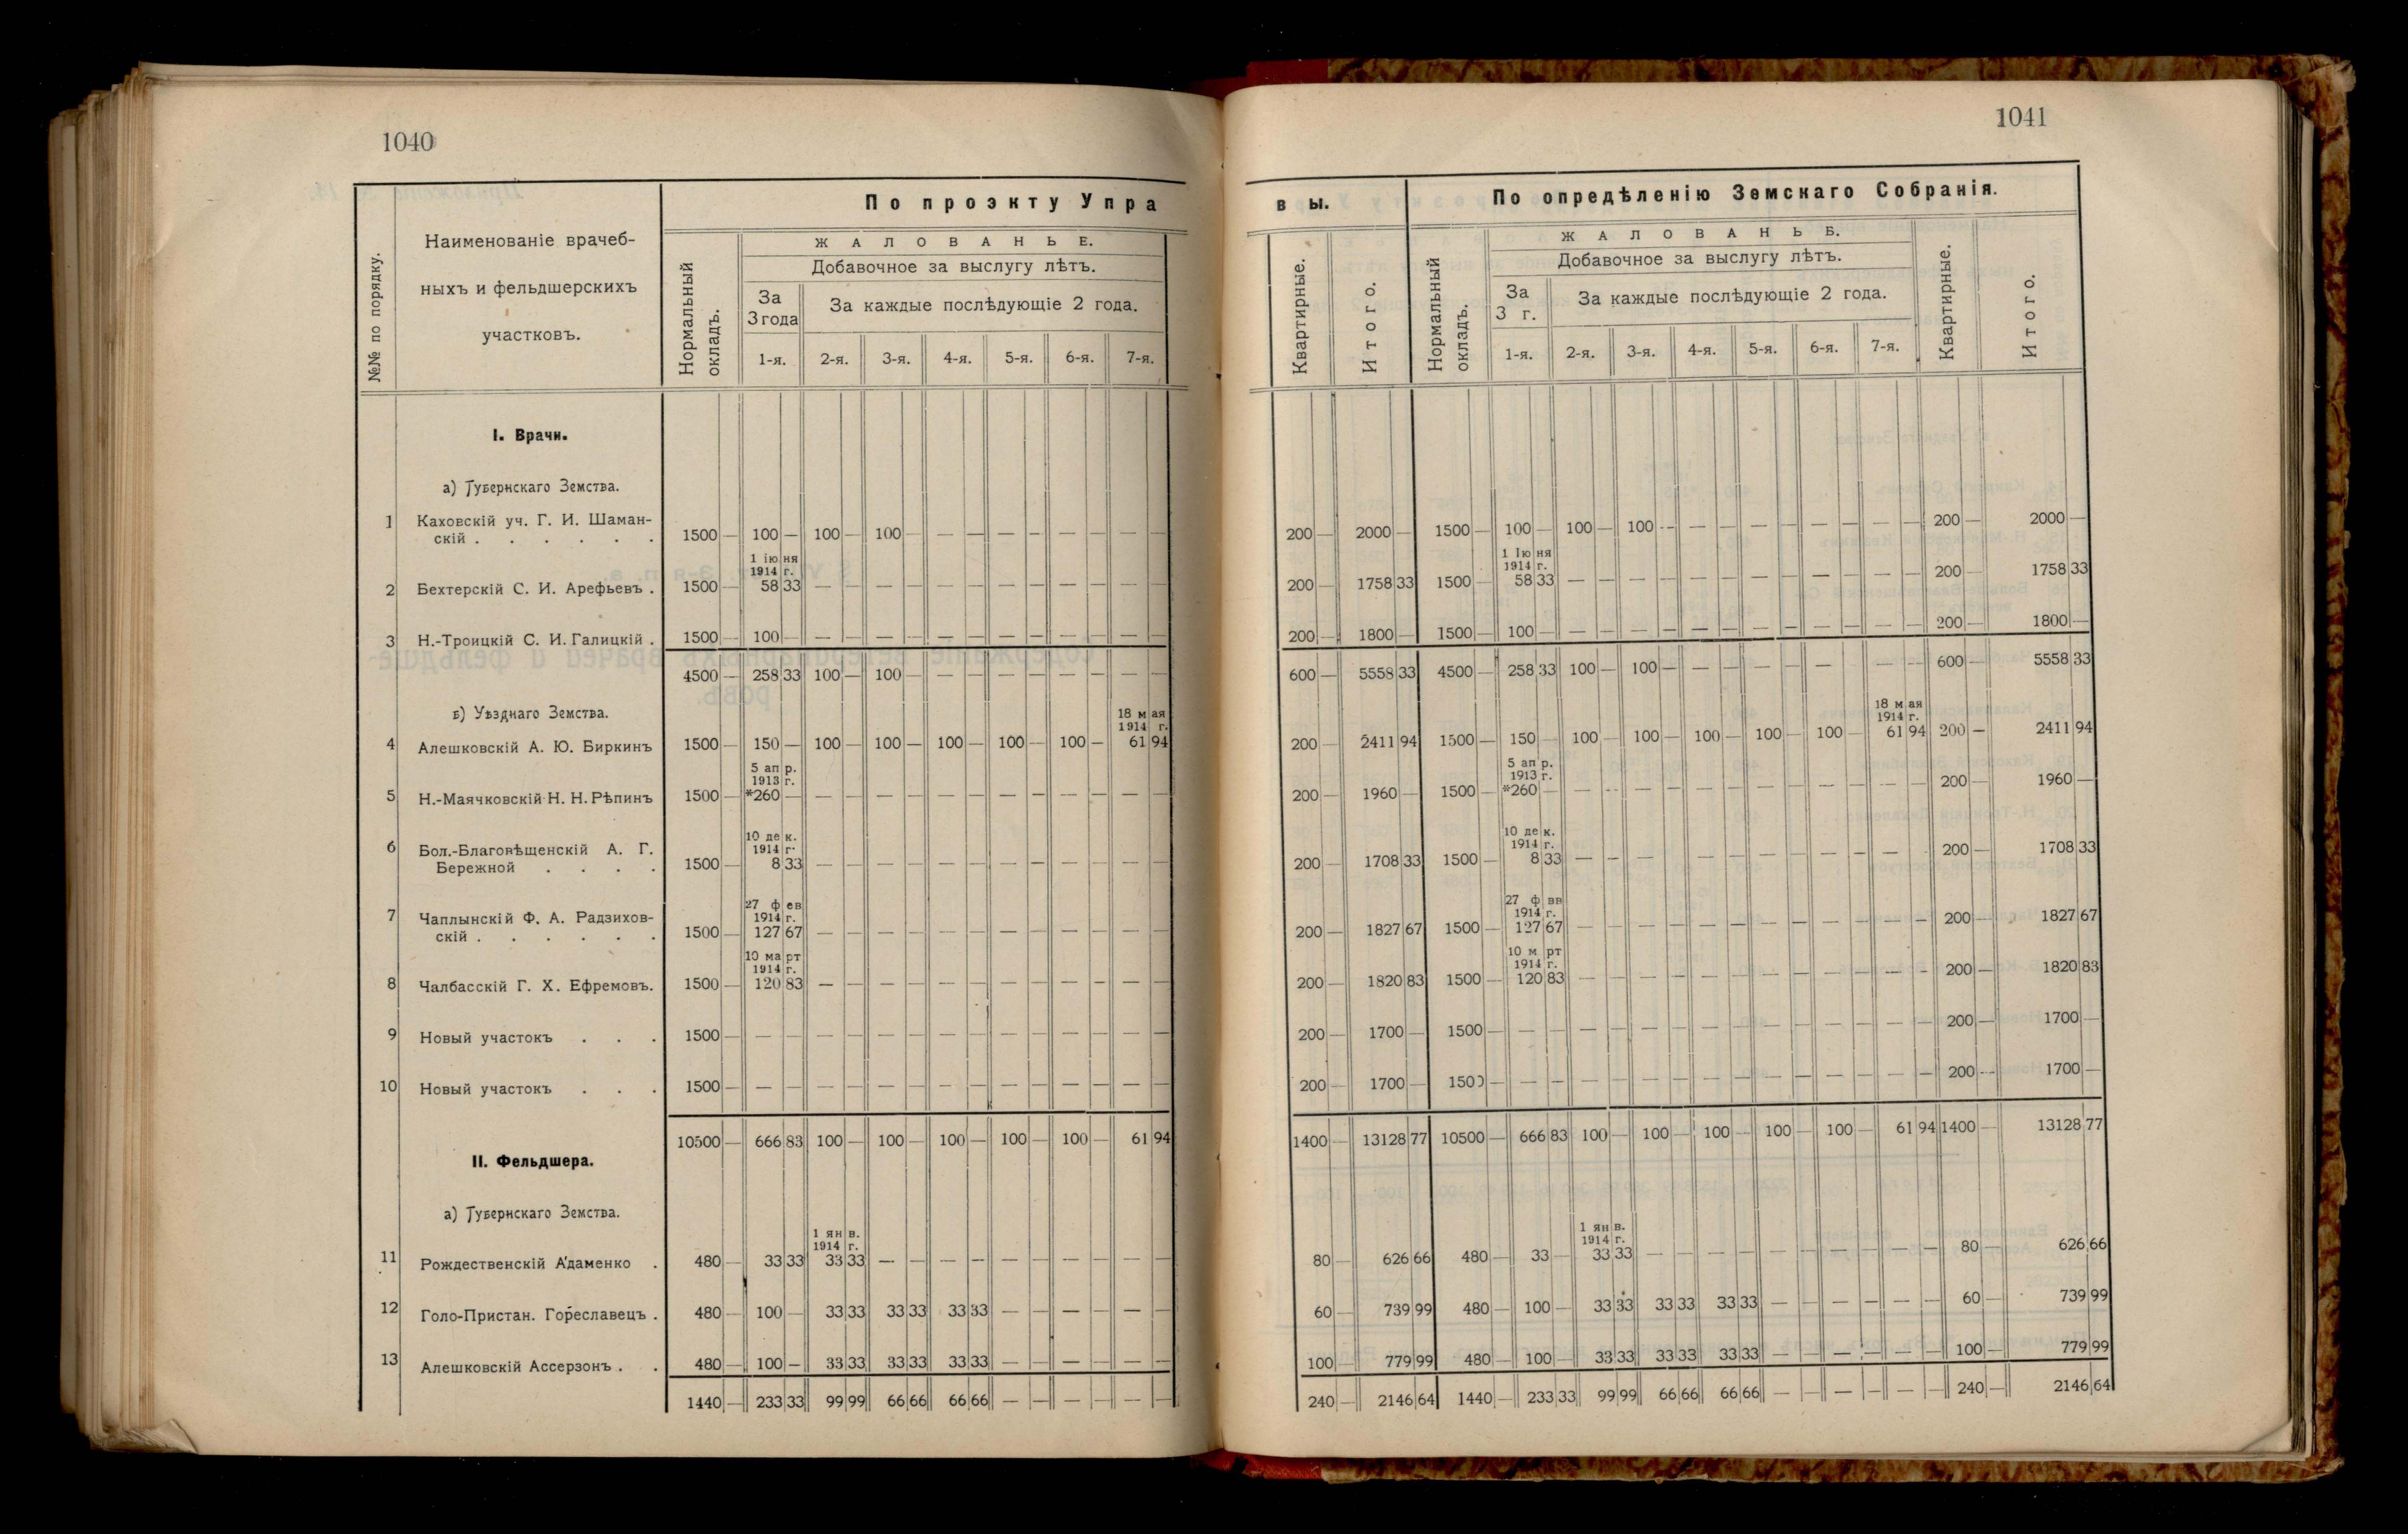 1040
№№ по порядку.
Наименованіе врачеб-
ныхъ и фельдшерскихъ
участковъ.
По проэкту Упра
Нормальный
окладъ.
ЖАЛОВАНЬЕ.
Добавочное за выслугу лѣтъ.
За
3 года
За каждые послѣдующіе 2 года.
1-я. 2-я. 3-я. 4-я. 5-я. 6-я. 7-я.
I. Врачи.
а) Губернскаго Земства.
1 Каховскій уч. Г. И. Шаман-
скій . . . . . . 1500 — 100 — 100 — 100 — — — — — — — — —
1 іюня
1914 г.
2 Бехтерскій С. И. Арефьевъ . 1500 — 58 33 — — — — — — — — — — — —
3 Н.-Троицкій С. И. Галицкій . 1500 — 100 — — — — — — — — — — — — —
4500 — 258 33 100 — 100 — — — — — — — — —
б) Уѣзднаго Земства.
18 мая
1914 г.
4 Алешковскій А. Ю. Биркинъ 1500 — 150 — 100 — 100 — 100 — 100 — 100 — 61 94
5 апр.
1913 г.
5 Н.-Маячковскій Н. Н. Рѣпинъ 1500 — *260 — — — — — — — — — — — — —
10 дек.
1914 г.
6 Бол.-Благовѣщенскій А. Г.
Бережной . . . . 1500 — 8 33 — — — — — — — — — — — —
27 фев
1914 г.
7 Чаплынскій Ф. А. Радзихов-
скій . . . . . . 1500 — 127 67 — — — — — — — — — — — —
10 март
1914 г.
8 Чалбасскій Г. Х. Ефремовъ. 1500 — 120 83 — — — — — — — — — — — —
9 Новый участокъ . . . 1500 — — — — — — — — — — — — — — —
10 Новый участокъ . . . 1500 — — — — — — — — — — — — — — —
10500 — 666 83 100 — 100 — 100 — 100 — 100 — 61 94
II. Фельдшера.
а) Губернскаго Земства.
1 янв.
1914 г.
11 Рождественскій Адаменко . 480 — 33 33 33 33 — — — — — — — — — —
12 Голо-Пристан. Гореславецъ . 480 — 100 — 33 33 33 33 33 33 — — — — — —
13 Алешковскій Ассерзонъ . . 480 — 100 — 33 33 33 33 33 33 — — — — — —
1440 — 233 33 99 99 66 66 66 66 — — — — — —
1041
вы.
По опредѣленію Земскаго Собранія.
Квартирные.
Итого.
Нормальный
окладъ.
ЖАЛОВАНЬБ.
Добавочное за выслугу лѣтъ.
За
3 г.
За каждые послѣдующіе 2 года.
1-я. 2-я. 3-я. 4-я. 5-я. 6-я. 7-я.
Квартирные.
Итого.
200 — 2000 — 1500 — 100 — 100 — 100 — — — — — — — — — 200 — 2000 —
1 Іюня
1914 г.
200 — 1758 33 1500 — 58 33 — — — — — — — — — — — — 200 — 1758 33
200 — 1800 — 1500 — 100 — — — — — — — — — — — — — 200 — 1800 —
600 — 5558 33 4500 — 258 33 100 — 100 — — — — — — — — — 600 — 5558 33
18 мая
1914 г.
200 — 2411 94 1500 — 150 — 100 — 100 — 100 — 100 — 100 — 61 94 200 — 2411 94
5 апр.
1913 г.
200 — 1960 — 1500 — *260 — — — — — — — — — — — — — 200 — 1960 —
10 дек.
1914 г.
200 — 1708 33 1500 — 8 33 — — — — — — — — — — — — 200 — 1708 33
27 фвв
1914 г.
200 — 1827 67 1500 — 127 67 — — — — — — — — — — — — 200 — 1827 67
10 м рт
1914 г.
200 — 1820 83 1500 — 120 83 — — — — — — — — — — — — 200 — 1820 83
200 — 1700 — 1500 — — — — — — — — — — — — — — — 200 — 1700 —
200 — 1700 — 1500 — — — — — — — — — — — — — — — 200 — 1700 —
1400 — 13128 77 10500 — 666 83 100 — 100 — 100 — 100 — 100 — 61 94 1400 — 13128 77
1 янв.
1914 г.
80 — 626 66 480 — 33 — 33 33 — — — — — — — — — — 80 — 626 66
60 — 739 99 480 — 100 — 33 33 33 33 33 33 — — — — — — 60 — 739 99
100 — 779 99 480 — 100 — 33 33 33 33 33 33 — — — — — — 100 — 779 99
240 — 2146 64 1440 — 233 33 99 99 66 66 66 66 — — — — — — 240 — 2146 64